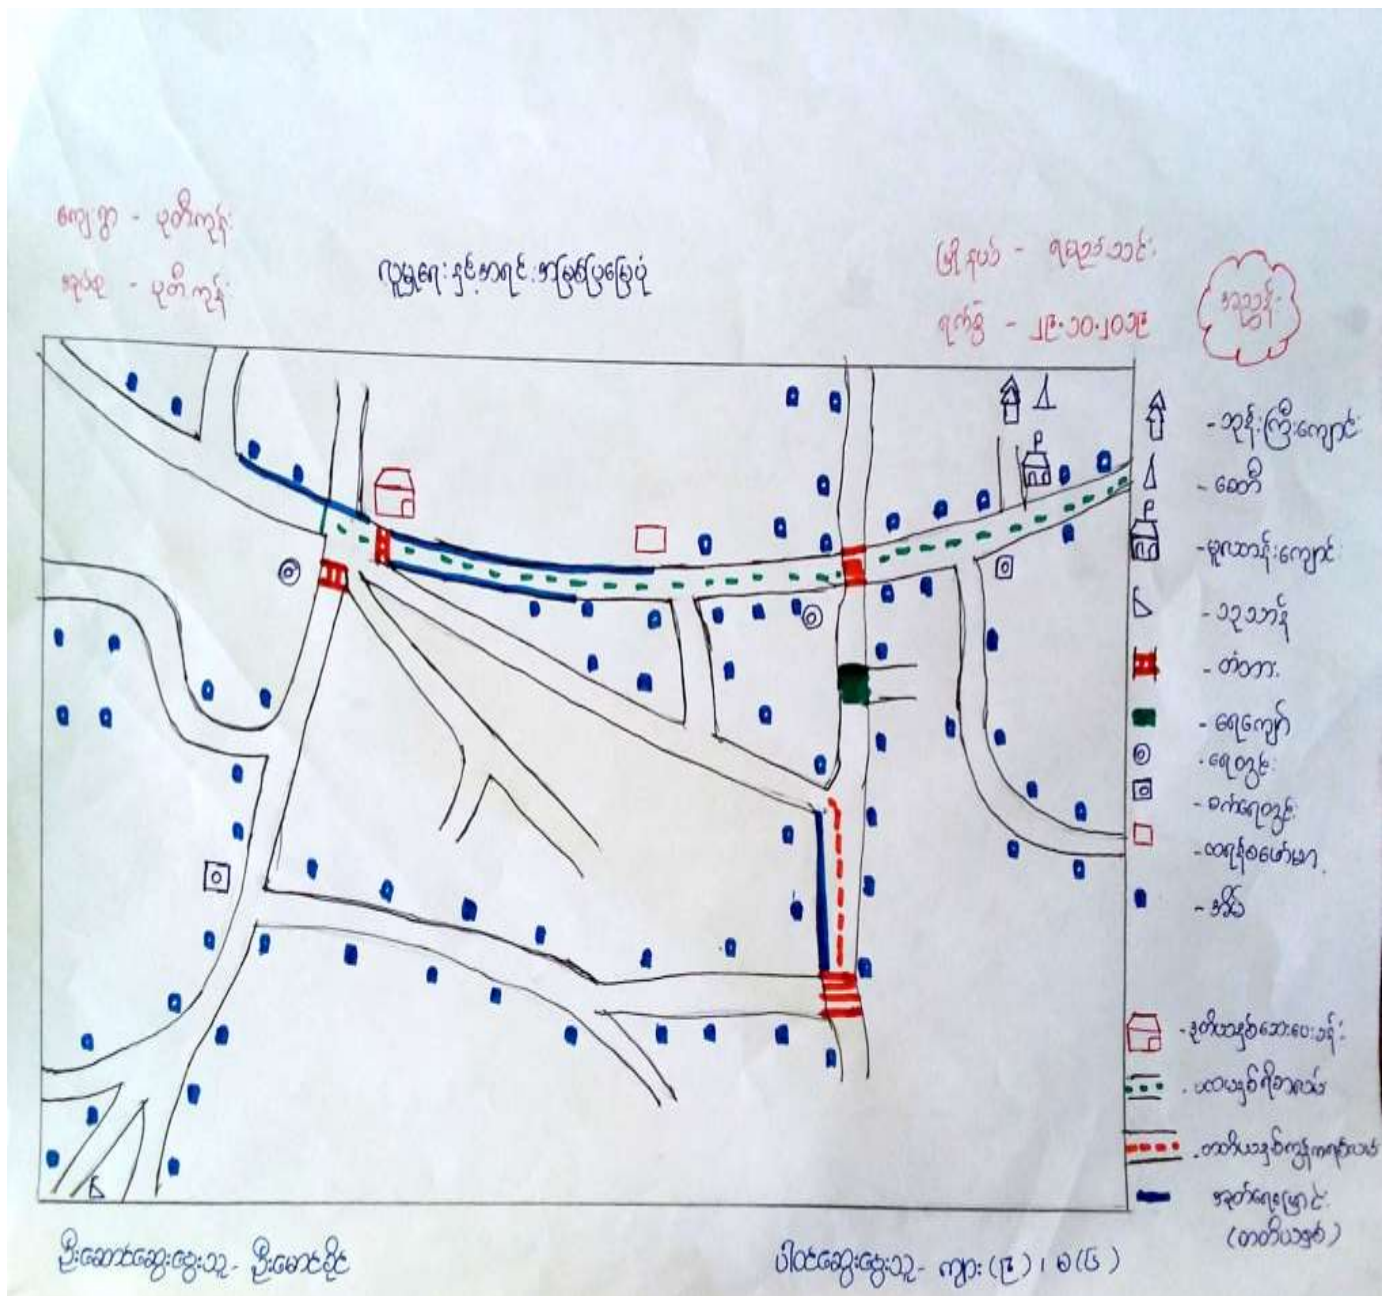 ကျေးရွာ - ပုတီးကုန်း
အုပ်စု - ပုတီးကုန်း
လူမှုရေးနှင့်အရင်းအမြစ်ပြမြေပုံ
မြို့နယ် - ရမည်းသင်း
ရက်စွဲ - ၂၉.၁၀.၂၀၁၉
အညွှန်း
- ဘုန်းကြီးကျောင်း
- စေတီ
- မူလတန်းကျောင်း
- သုသာန်
- တံတား
- ရေကျော်
- ရေတွင်း
- စက်ရေတွင်း
- ထရန်စဖော်မာ
- အိမ်
- ဒုတိယနှစ်ဆေးပေးခန်း
- ပထမနှစ်
- တတိယနှစ်ကွန်ကရစ်လမ်း
အုတ်ရေမြောင်း
(တတိယနှစ်)
ဦးဆောင်ဆွေးနွေးသူ - ဦးမောင်ခိုင်
ပါဝင်ဆွေးနွေးသူ - ကျား (၉) ၊ မ (၆)